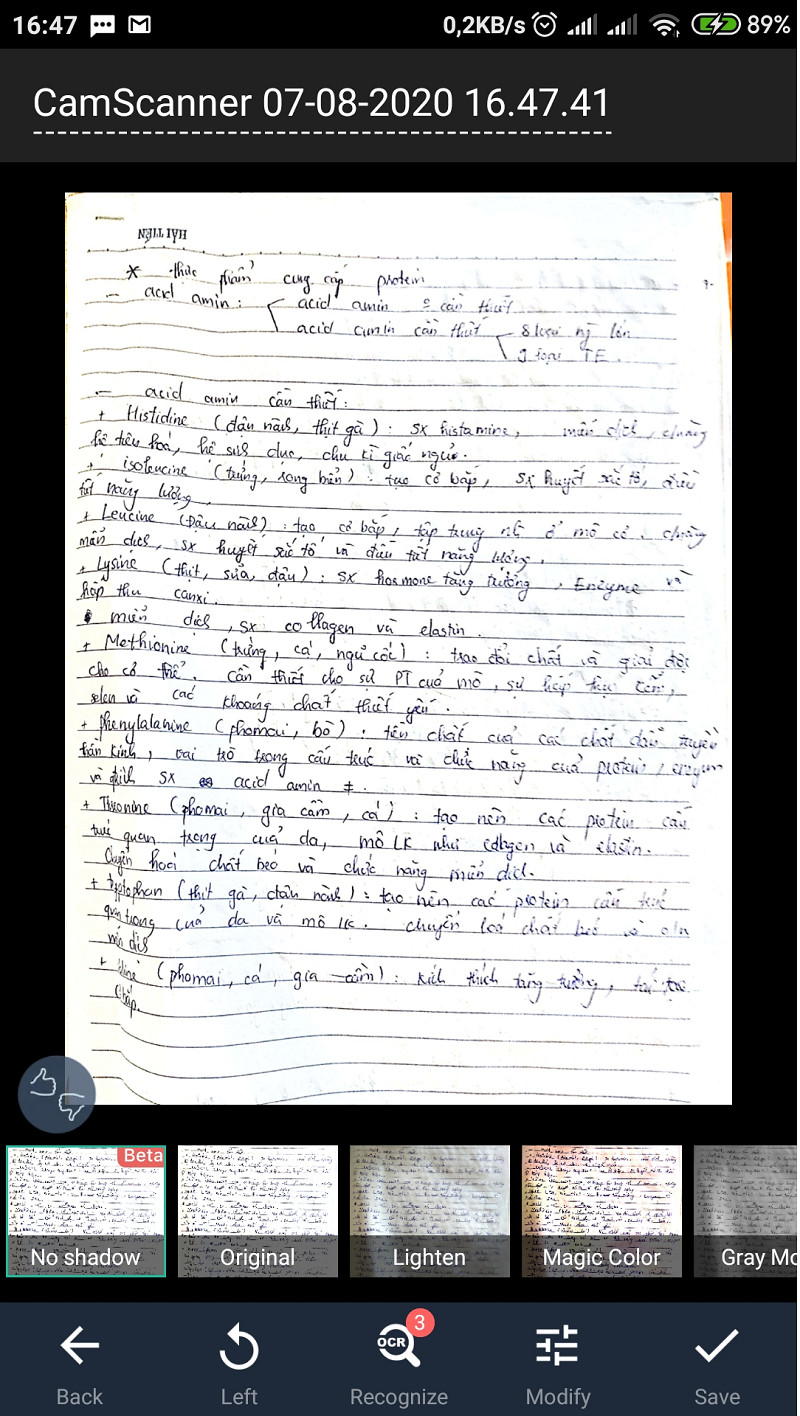 16:47 0,2KB/s 89%
CamScanner 07-08-2020 16.47.41
HẢI TIẾN
* thực phẩm cung cấp protein
- acid amin: acid amin o cần thiết
acid amin cần thiết 8 loại ng lớn
9 loại TE.
- acid amin cần thiết:
+ Histidine (đậu nành, thịt gà): sx histamine, miễn dịch, chường
hệ tiêu hoá, hệ sinh dục, chu kì giấc ngủ.
+ isoleucine (trứng, rong biển): tạo cơ bắp, sx huyết sắc tố, điều
tiết năng lượng
+ Leucine (Đậu nành): tạo cơ bắp, tập trung ở mô cơ, chường
miễn dịch, sx huyết sắc tố và điều tiết năng lượng.
+ Lysine (thịt, sữa, đậu): sx hormone tăng trưởng, Enzyme và
hấp thu canxi.
miễn dịch, sx collagen và elastin.
+ Methionine (trứng, cá, ngũ cốc): trao đổi chất và giải độc
cho cơ thể. cần thiết cho sự PT của mô, sự hấp thu kẽm,
selen và các khoáng chất thiết yếu.
+ phenylalanine (phomai, bò). tiền chất của các chất dẫn truyền
thần kinh, vai trò trong cấu trúc và chức năng của protein, enzym
và sx acid amin ≠.
+ Threonine (phomai, gia cầm, cá): tạo nên các protein cấu
trúc quan trọng của da, mô LK như collagen và elastin.
chuyển hoá chất béo và chức năng miễn dịch.
+ tryptophan (thịt gà, đậu nành): tạo nên các protein cấu trúc
quan trọng của da và mô lk. chuyển hoá chất béo và c/n
miễn dịch
+ (phomai, cá, gia cầm): kích thích tăng trưởng, tái tạo
cơ bắp.
Beta
No shadow Original Lighten Magic Color Gray Mo
OCR 3
Back Left Recognize Modify Save